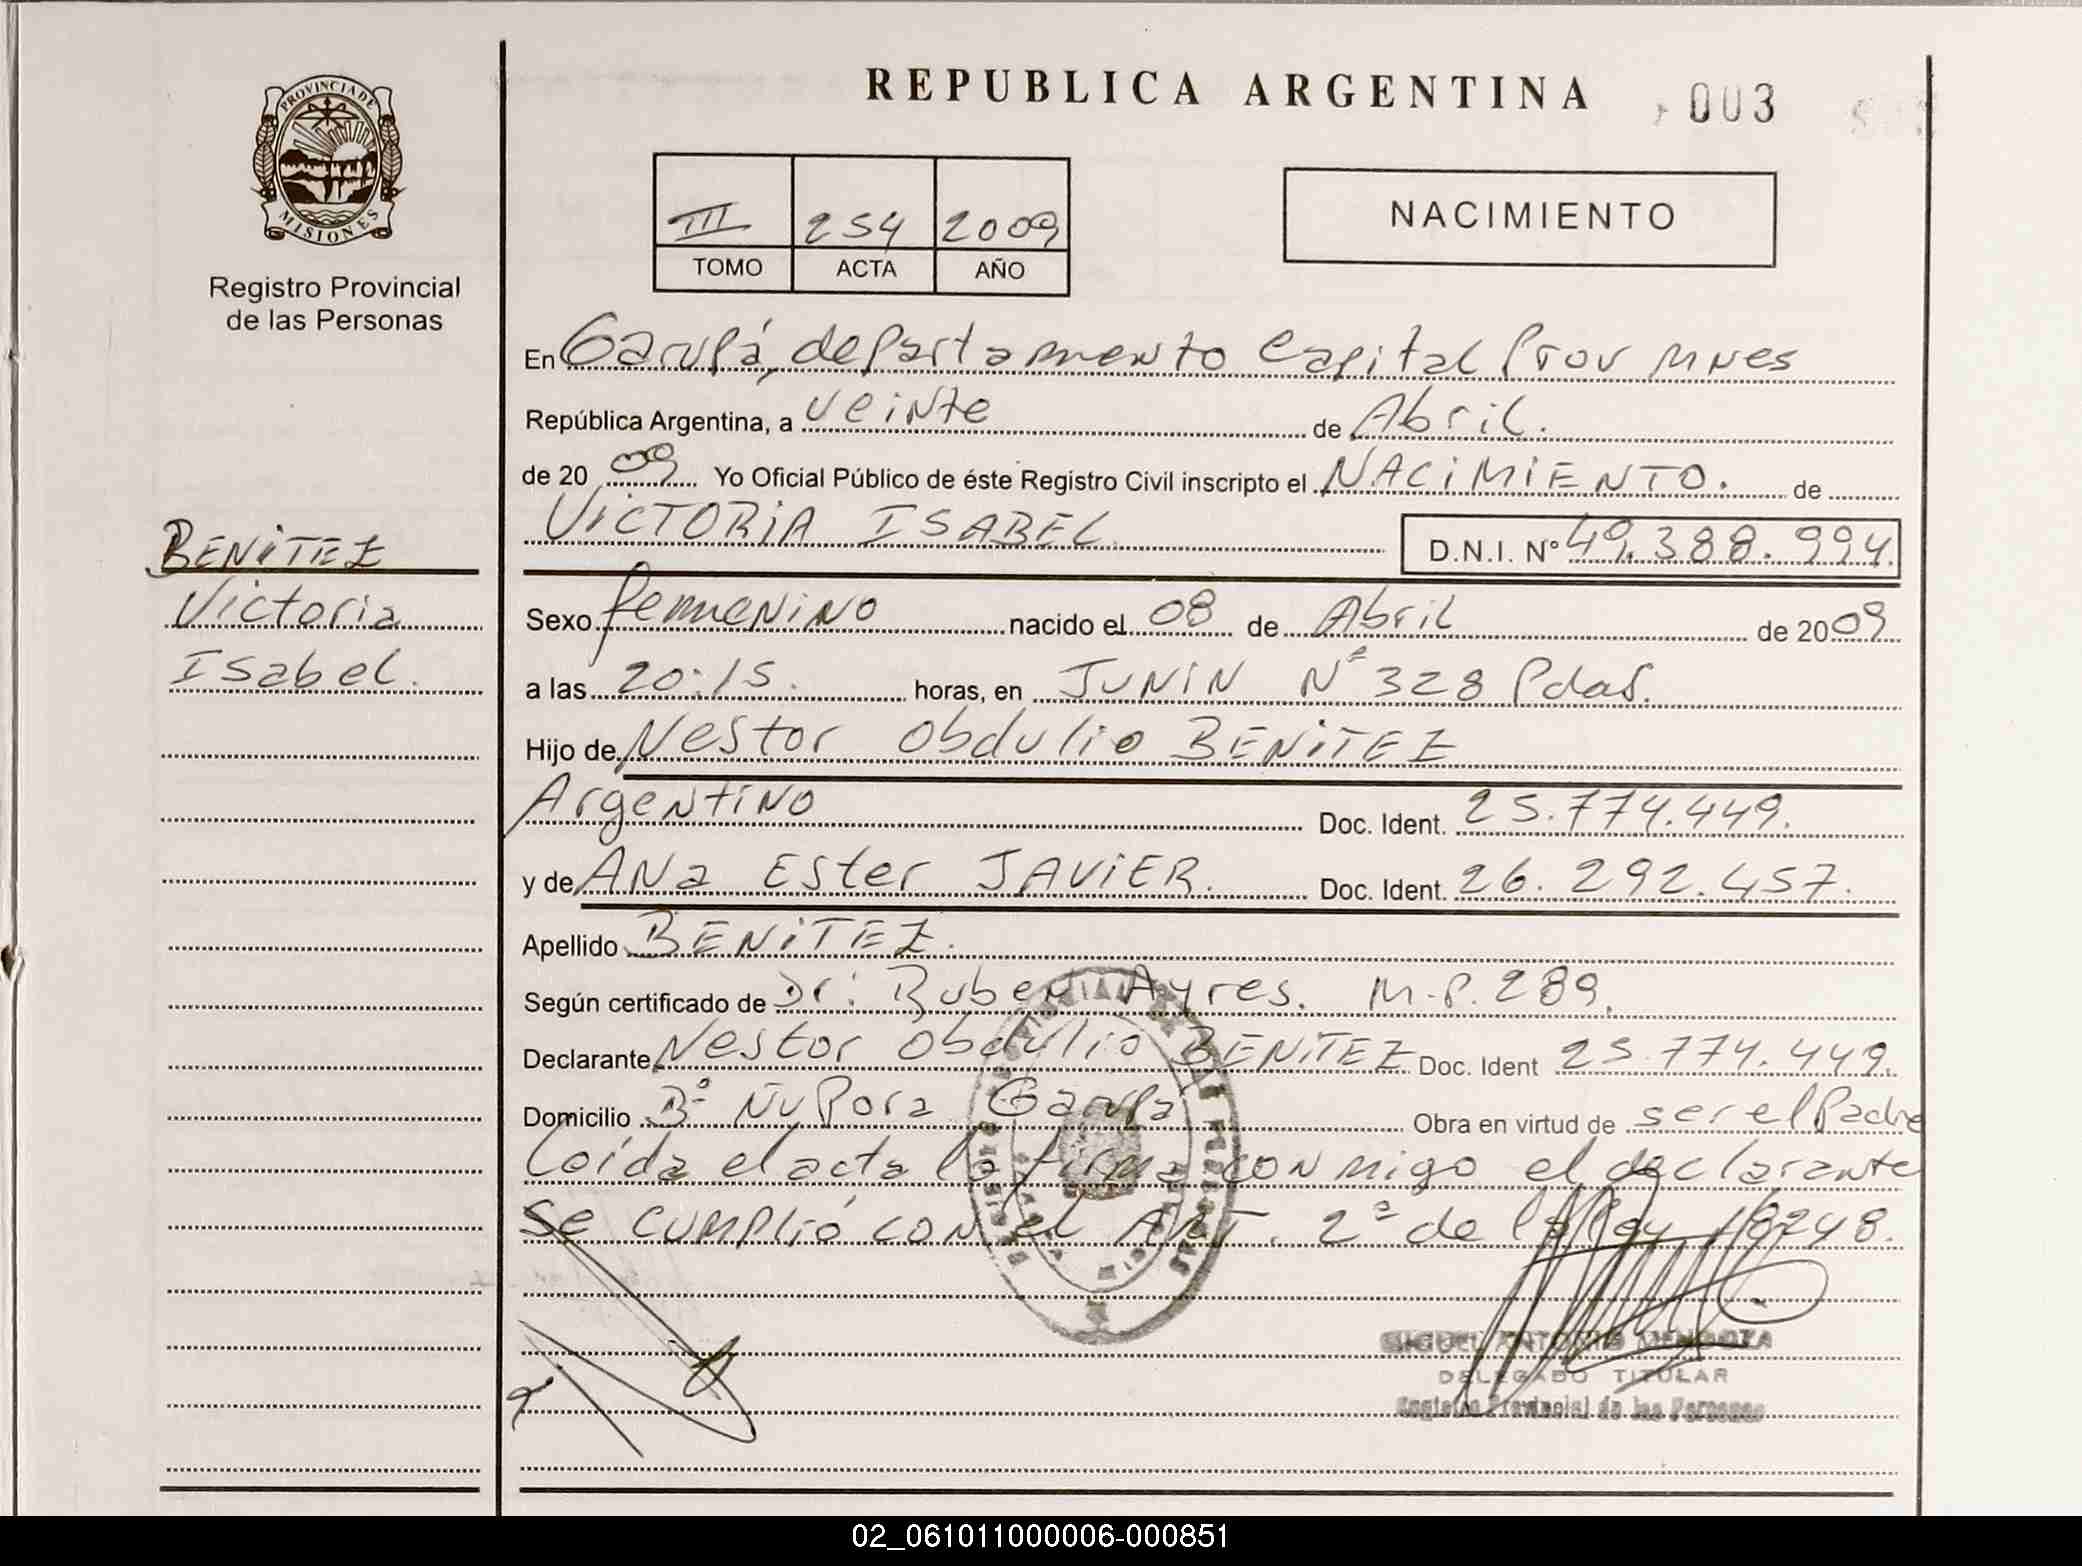 REPUBLICA ARGENTINA
003
PROVINCIA DE
MISIONES
Registro Provincial
de las Personas
III 254 2009
TOMO ACTA AÑO
NACIMIENTO
En Garupá, departamento Capital Prov Mnes
República Argentina, a veinte de Abril.
de 20 09 Yo Oficial Público de éste Registro Civil inscripto el NACIMIENTO. de
VICTORIA ISABEL. D.N.I. Nº 49.388.994
BENITEZ
Victoria
Isabel.
Sexo femenino nacido el 08 de Abril de 2009
a las 20:15. horas, en JUNIN Nº 328 Pdas.
Hijo de Nestor Obdulio BENITEZ
Argentino Doc. Ident. 25.774.449.
y de Ana Ester JAVIER. Doc. Ident. 26.292.457.
Apellido BENITEZ.
Según certificado de Dr: Ruben Ayres. M.P. 289.
Declarante Nestor Obdulio BENITEZ Doc. Ident 25.774.449.
Domicilio Bº Ñu Pora Garupá Obra en virtud de ser el Padre
Loída el acta la firma conmigo el declarante
se cumplió con el ART. 2º de la Ley 18248.
MIGUEL ANTONIO MENDOZA
DELEGADO TITULAR
Registro Provincial de las Personas
02_061011000006-000851